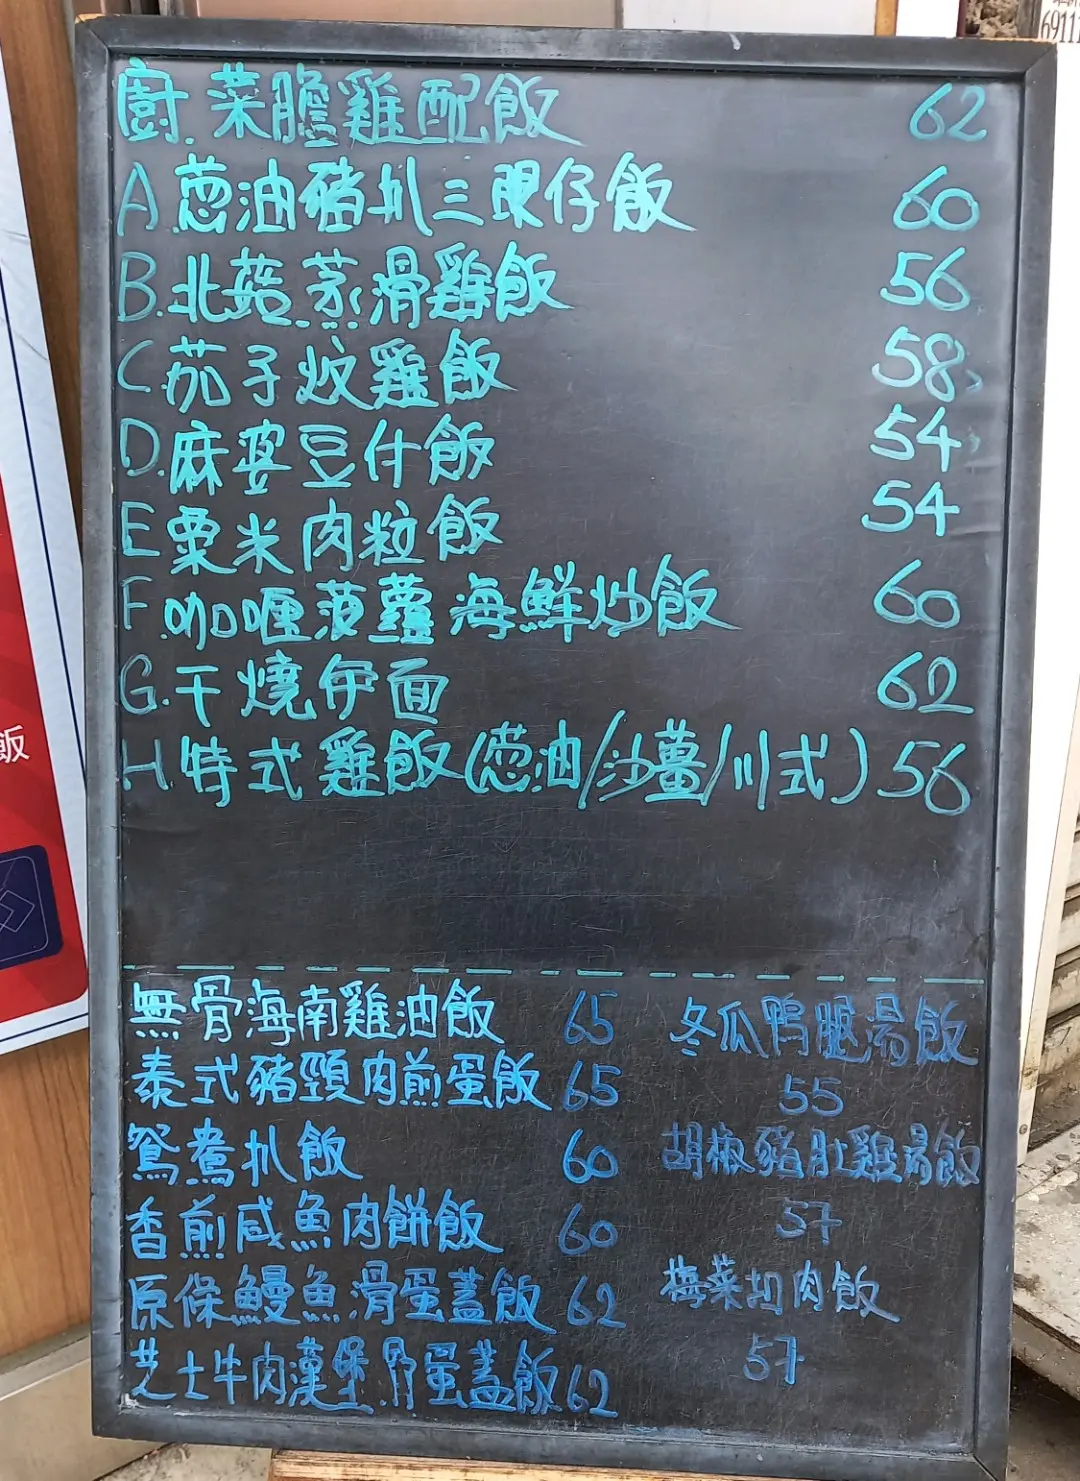 廚.菜膽雞配飯 62
A.蔥油豬扒三眼仔飯 60
B.北菇蒸滑雞飯 56
C.茄子炆雞飯 58
D.麻婆豆什飯 54
E粟米肉粒飯 54
F.咖喱菠蘿海鮮炒飯 60
G.干燒伊面 62
H.特式雞飯(蔥油/沙薑/川式) 56
無骨海南雞油飯 65
泰式豬頸肉煎蛋飯 65
鴛鴦扒飯 60
香煎咸魚肉餅飯 60
原條鰻魚滑蛋蓋飯 62
芝士牛肉漢堡滑蛋蓋飯 62
冬瓜鴨腿湯飯
55
胡椒豬肚雞湯飯
57
梅菜扣肉飯
57
飯
6911